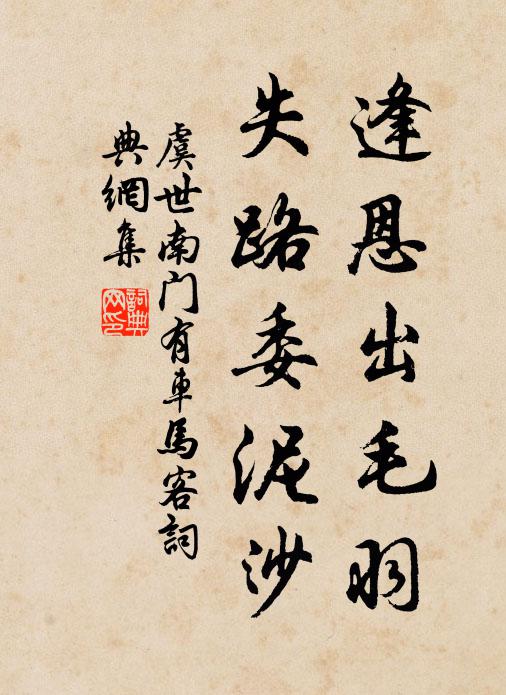 逢恩出毛羽
失路委泥沙
虞世南门有車馬客詞
典網集
詞典网印